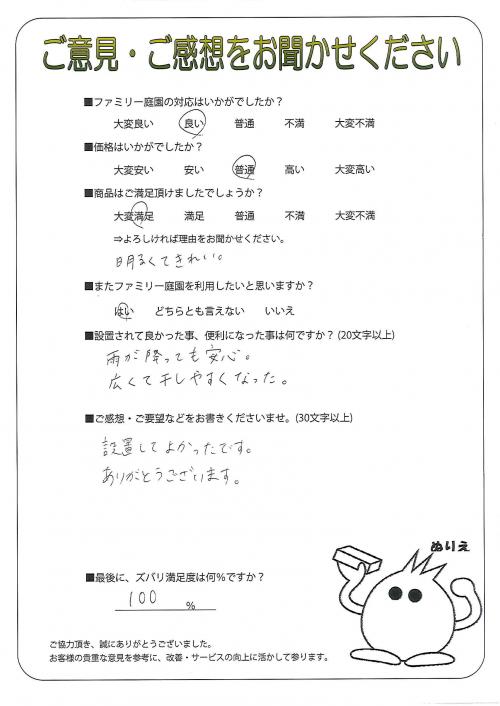 ご意見・ご感想をお聞かせください
■ファミリー庭園の対応はいかがでしたか？
大変良い 良い 普通 不満 大変不満
■価格はいかがでしたか？
大変安い 安い 普通 高い 大変高い
■商品はご満足頂けましたでしょうか？
大変満足 満足 普通 不満 大変不満
⇒よろしければ理由をお聞かせください。
明るくてきれい。
■またファミリー庭園を利用したいと思いますか？
はい どちらとも言えない いいえ
■設置されて良かった事、便利になった事は何ですか？(20文字以上)
雨が降っても安心。
広くて干しやすくなった。
■ご感想・ご要望などをお書きくださいませ。(30文字以上)
設置してよかったです。
ありがとうございます。
ぬりえ
■最後に、ズバリ満足度は何％ですか？
100 %
ご協力頂き、誠にありがとうございました。
お客様の貴重な意見を参考に、改善・サービスの向上に活かして参ります。